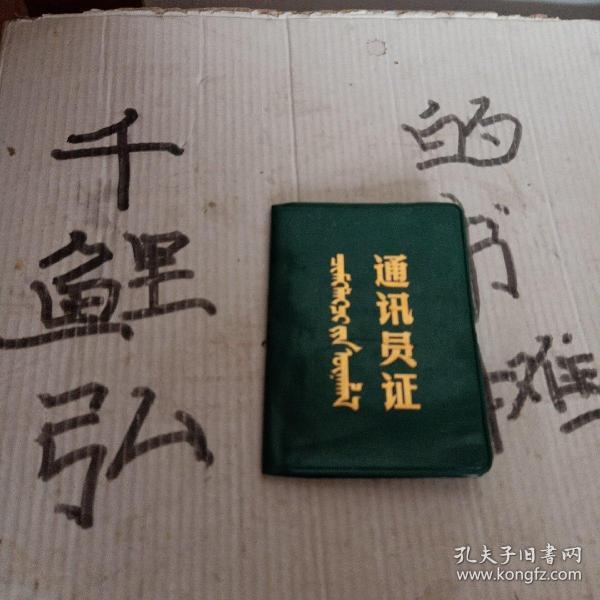 千鲤弘
的书摊
通讯员证
孔夫子旧书网
www.kongfz.com